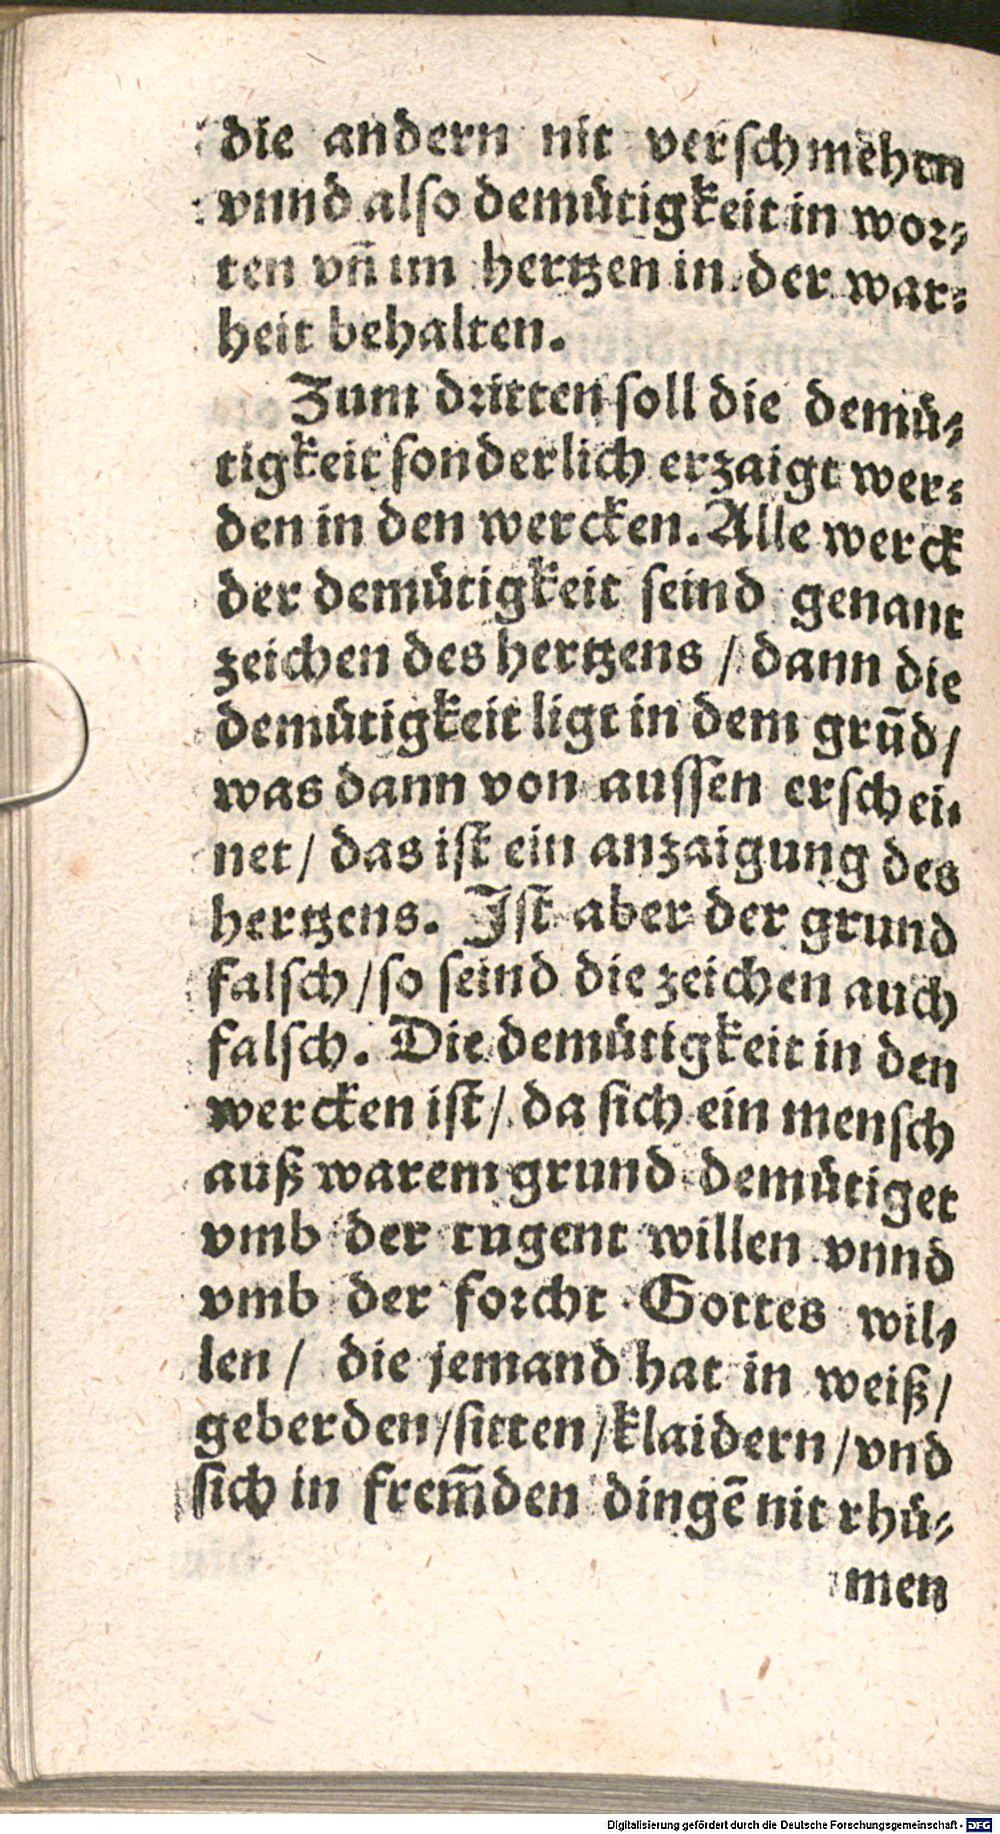 die andern nit verschmehen
vnnd also demütigkeit in wor-
ten vn̄ im hertzen in der war-
heit behalten.
Zum dritten soll die demü-
tigkeit sonderlich erzaigt wer-
den in den wercken. Alle werck
der demütigkeit seind genant
zeichen des hertzens / dann die
demütigkeit ligt in dem grūd /
was dann von aussen erschei-
net / das ist ein anzaigung des
hertzens. Ist aber der grund
falsch / so seind die zeichen auch
falsch. Die demütigkeit in den
wercken ist / da sich ein mensch
auß warem grund demütiget
vmb der tugent willen vnnd
vmb der forcht Gottes wil-
len / die jemand hat in weiß /
geberden / sitten / klaidern / vnd
sich in frem̄den dingē nit rhü-
men
Digitalisierung gefördert durch die Deutsche Forschungsgemeinschaft - DFG